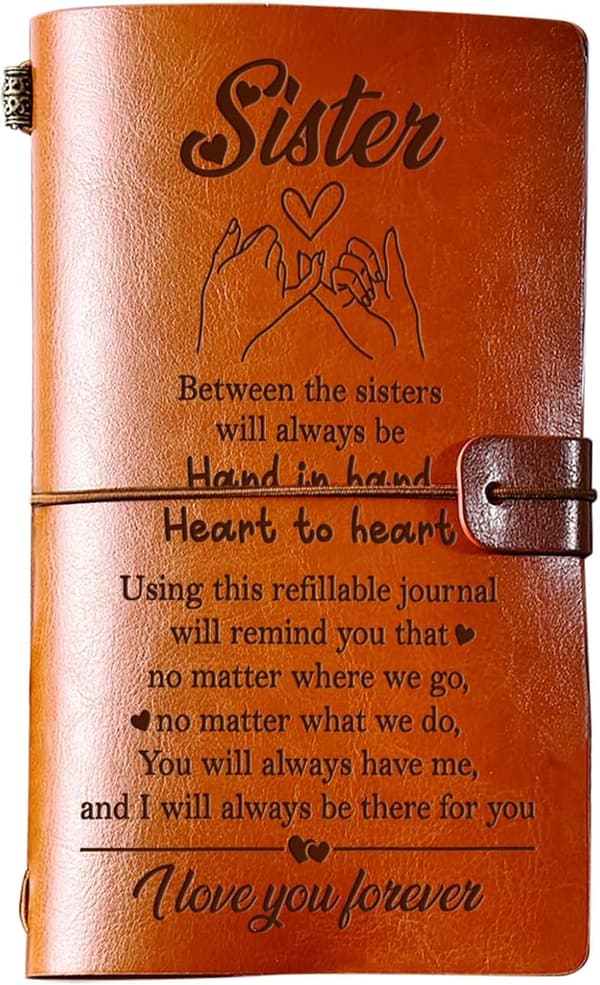 Sister
Between the sisters
will always be
Hand in hand
Heart to heart
Using this refillable journal
will remind you that
no matter where we go,
no matter what we do,
You will always have me,
and I will always be there for you
I love you forever